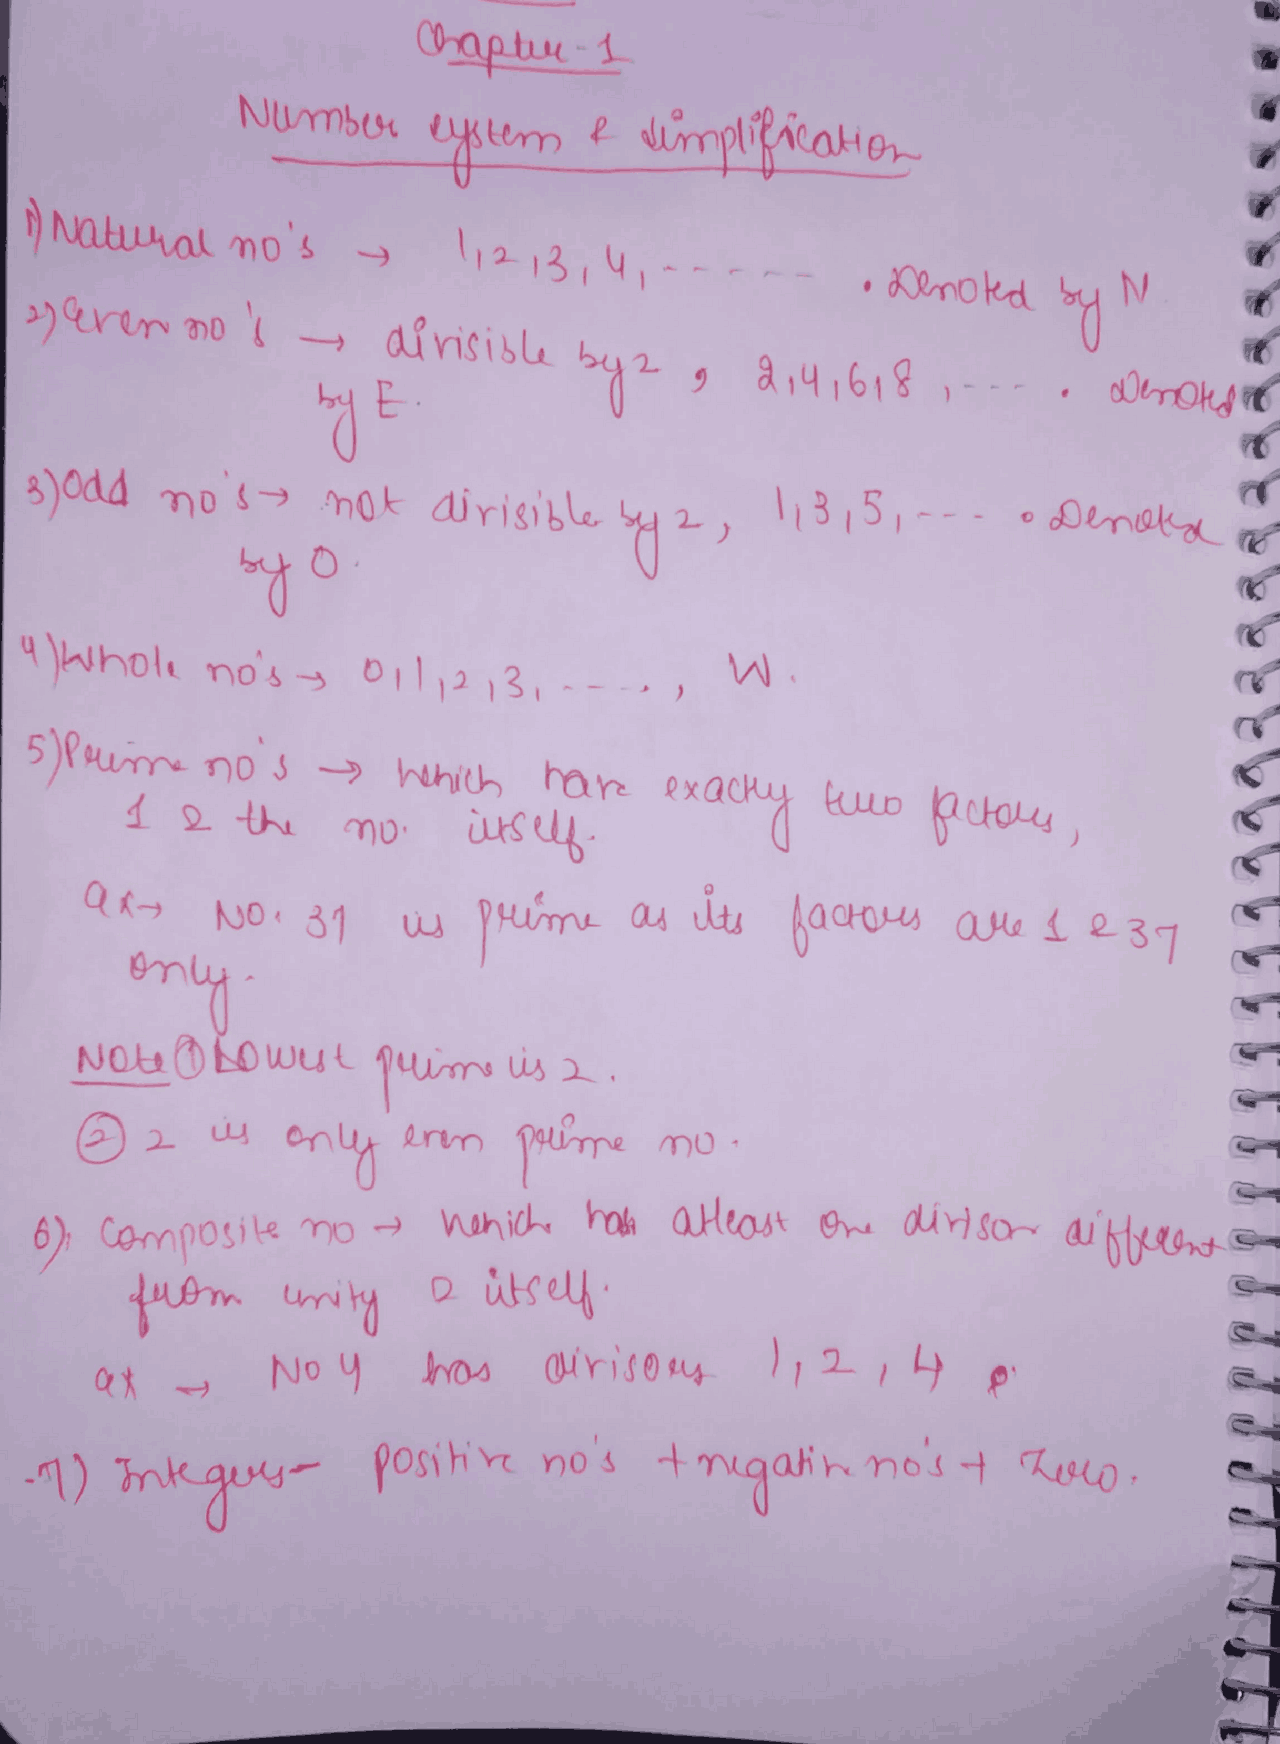 Chapter-1
Number system & simplification
1) Natural no's → 1, 2, 3, 4, ------ . Denoted by N
2) Even no's → divisible by 2, 2, 4, 6, 8, ---- . Denoted
by E.
3) Odd no's → not divisible by 2, 1, 3, 5, ---- . Denoted
by O.
4) Whole no's → 0, 1, 2, 3, ----., W.
5) Prime no's → which have exacty two factors,
1 & the no. itself.
ex → NO. 37 is prime as its factors are 1 & 37
only.
Note ① Lowest prime is 2.
② 2 is only even prime no.
6), Composite no → which has atleast one divisor different
from unity & itself.
ex → No 4 has divisors 1, 2, 4
7) Integers - positive no's + negative no's + Zero.